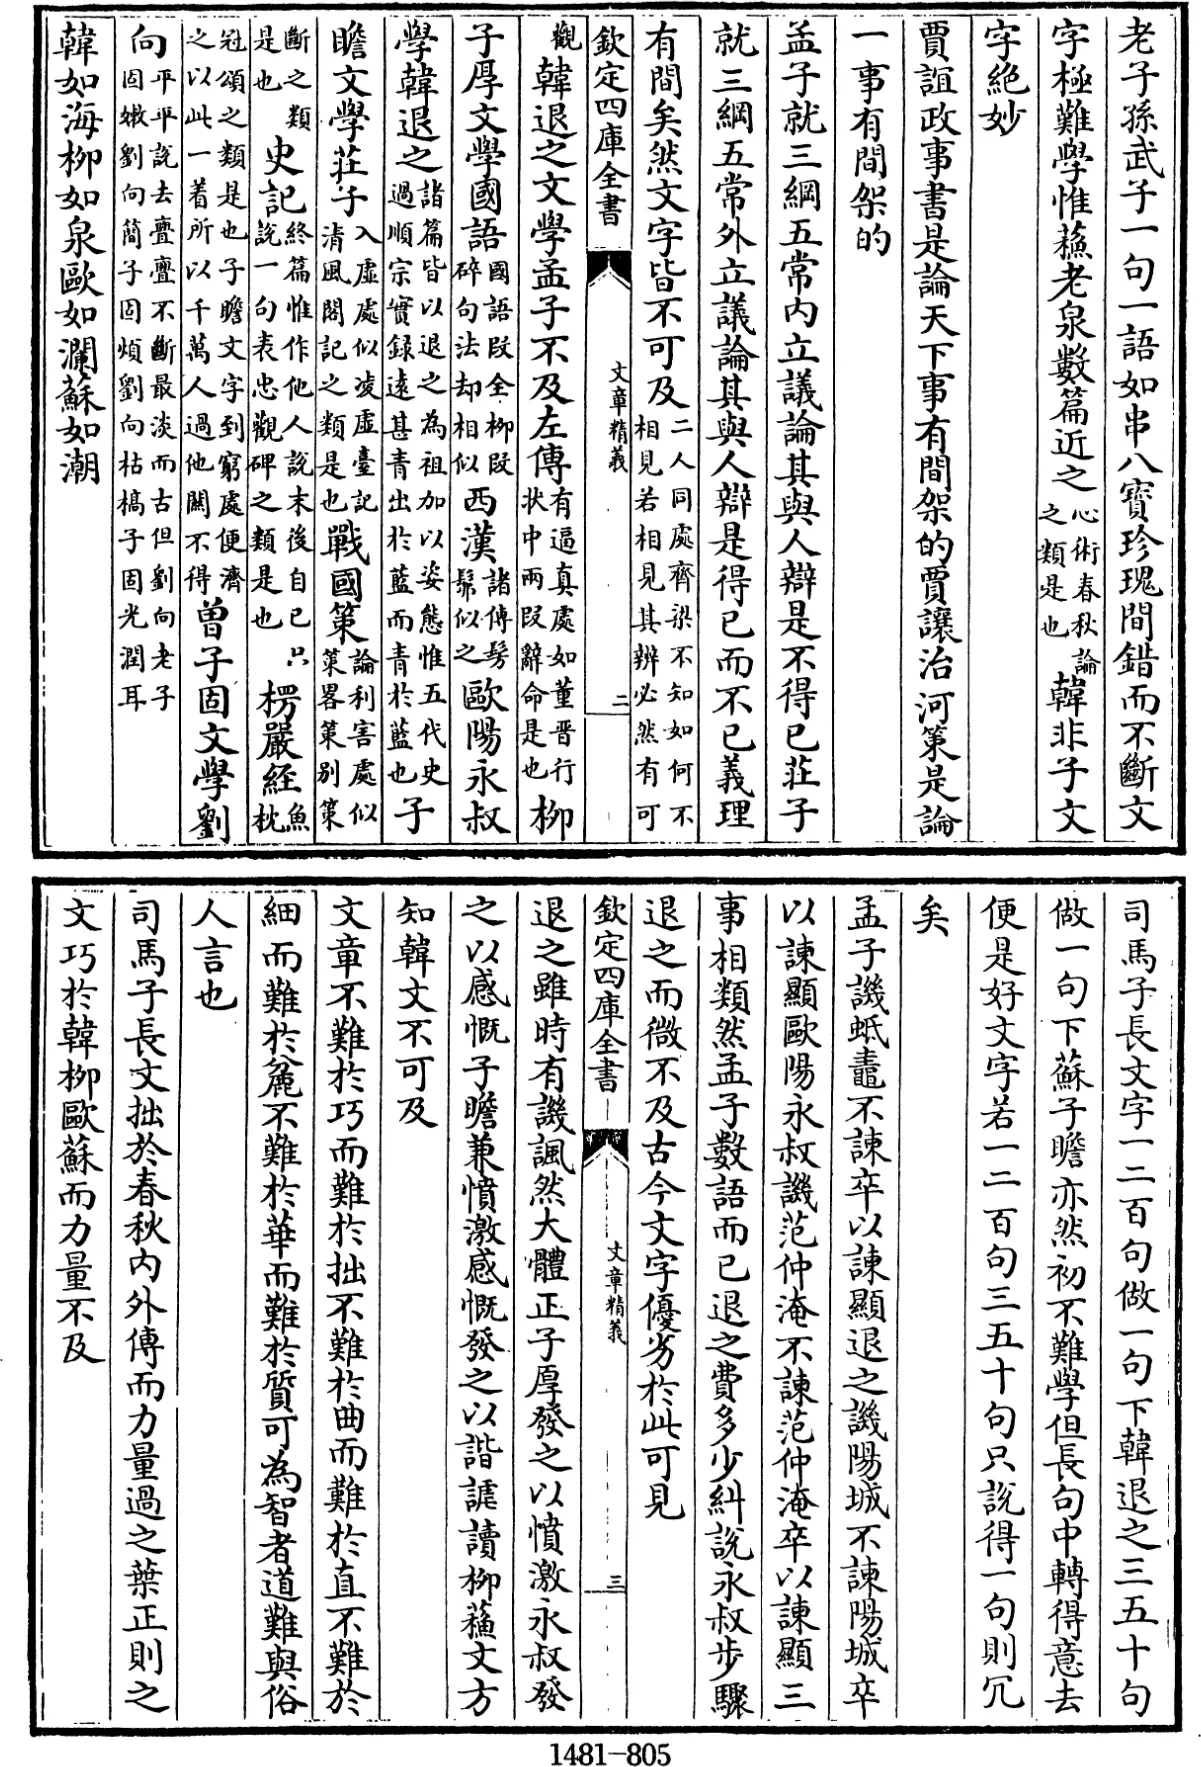 老子孫武子一句一語如串八寳珍瑰間錯而不斷文
字極難學惟蘓老泉數篇近之心術春秋論之類是也韓非子文
字絶妙
賈誼政事書是論天下事有間架的賈讓治河策是論
一事有間架的
孟子就三綱五常内立議論其與人辯是不得已莊子
就三綱五常外立議論其與人辯是得已而不已義理
有間矣然文字皆不可及二人同處齊梁不知如何不相見若相見其辨必然有可
欽定四庫全書 文章精義 二
觀韓退之文學孟子不及左傳有逼真處如董晉行狀中兩段辭命是也柳
子厚文學國語國語段全柳段碎句法却相似西漢諸傳髣髴似之歐陽永叔
學韓退之諸篇皆以退之為祖加以姿態惟五代史過順宗實錄遠甚青出於藍而青於藍也子
瞻文學莊子入虛處似凌虛臺記清風閣記之類是也戰國策論利害處似策畧策别策
斷之類是也史記終篇惟作他人說末後自已只說一句表忠觀碑之類是也楞嚴經魚枕
冠頌之類是也子瞻文字到窮處便濟之以此一着所以千萬人過他關不得曽子固文學劉
向平平說去亹亹不斷最淡而古但劉向老子固嫩劉向簡子固煩劉向枯槁子固光潤耳
韓如海柳如泉歐如瀾蘇如潮
司馬子長文字一二百句做一句下韓退之三五十句
做一句下蘇子瞻亦然初不難學但長句中轉得意去
便是好文字若一二百句三五十句只說得一句則冗
矣
孟子譏蚳鼃不諫卒以諫顯退之譏陽城不諫陽城卒
以諫顯歐陽永叔譏范仲淹不諫范仲淹卒以諫顯三
事相類然孟子數語而已退之費多少糾說永叔步驟
退之而微不及古今文字優劣於此可見
欽定四庫全書 文章精義 三
退之雖時有譏諷然大體正子厚發之以憤激永叔發
之以感慨子瞻兼憤激感慨發之以諧謔讀柳蘓文方
知韓文不可及
文章不難於巧而難於拙不難於曲而難於直不難於
細而難於麄不難於華而難於質可為智者道難與俗
人言也
司馬子長文拙於春秋内外傳而力量過之葉正則之
文巧於韓柳歐蘇而力量不及
1481-805